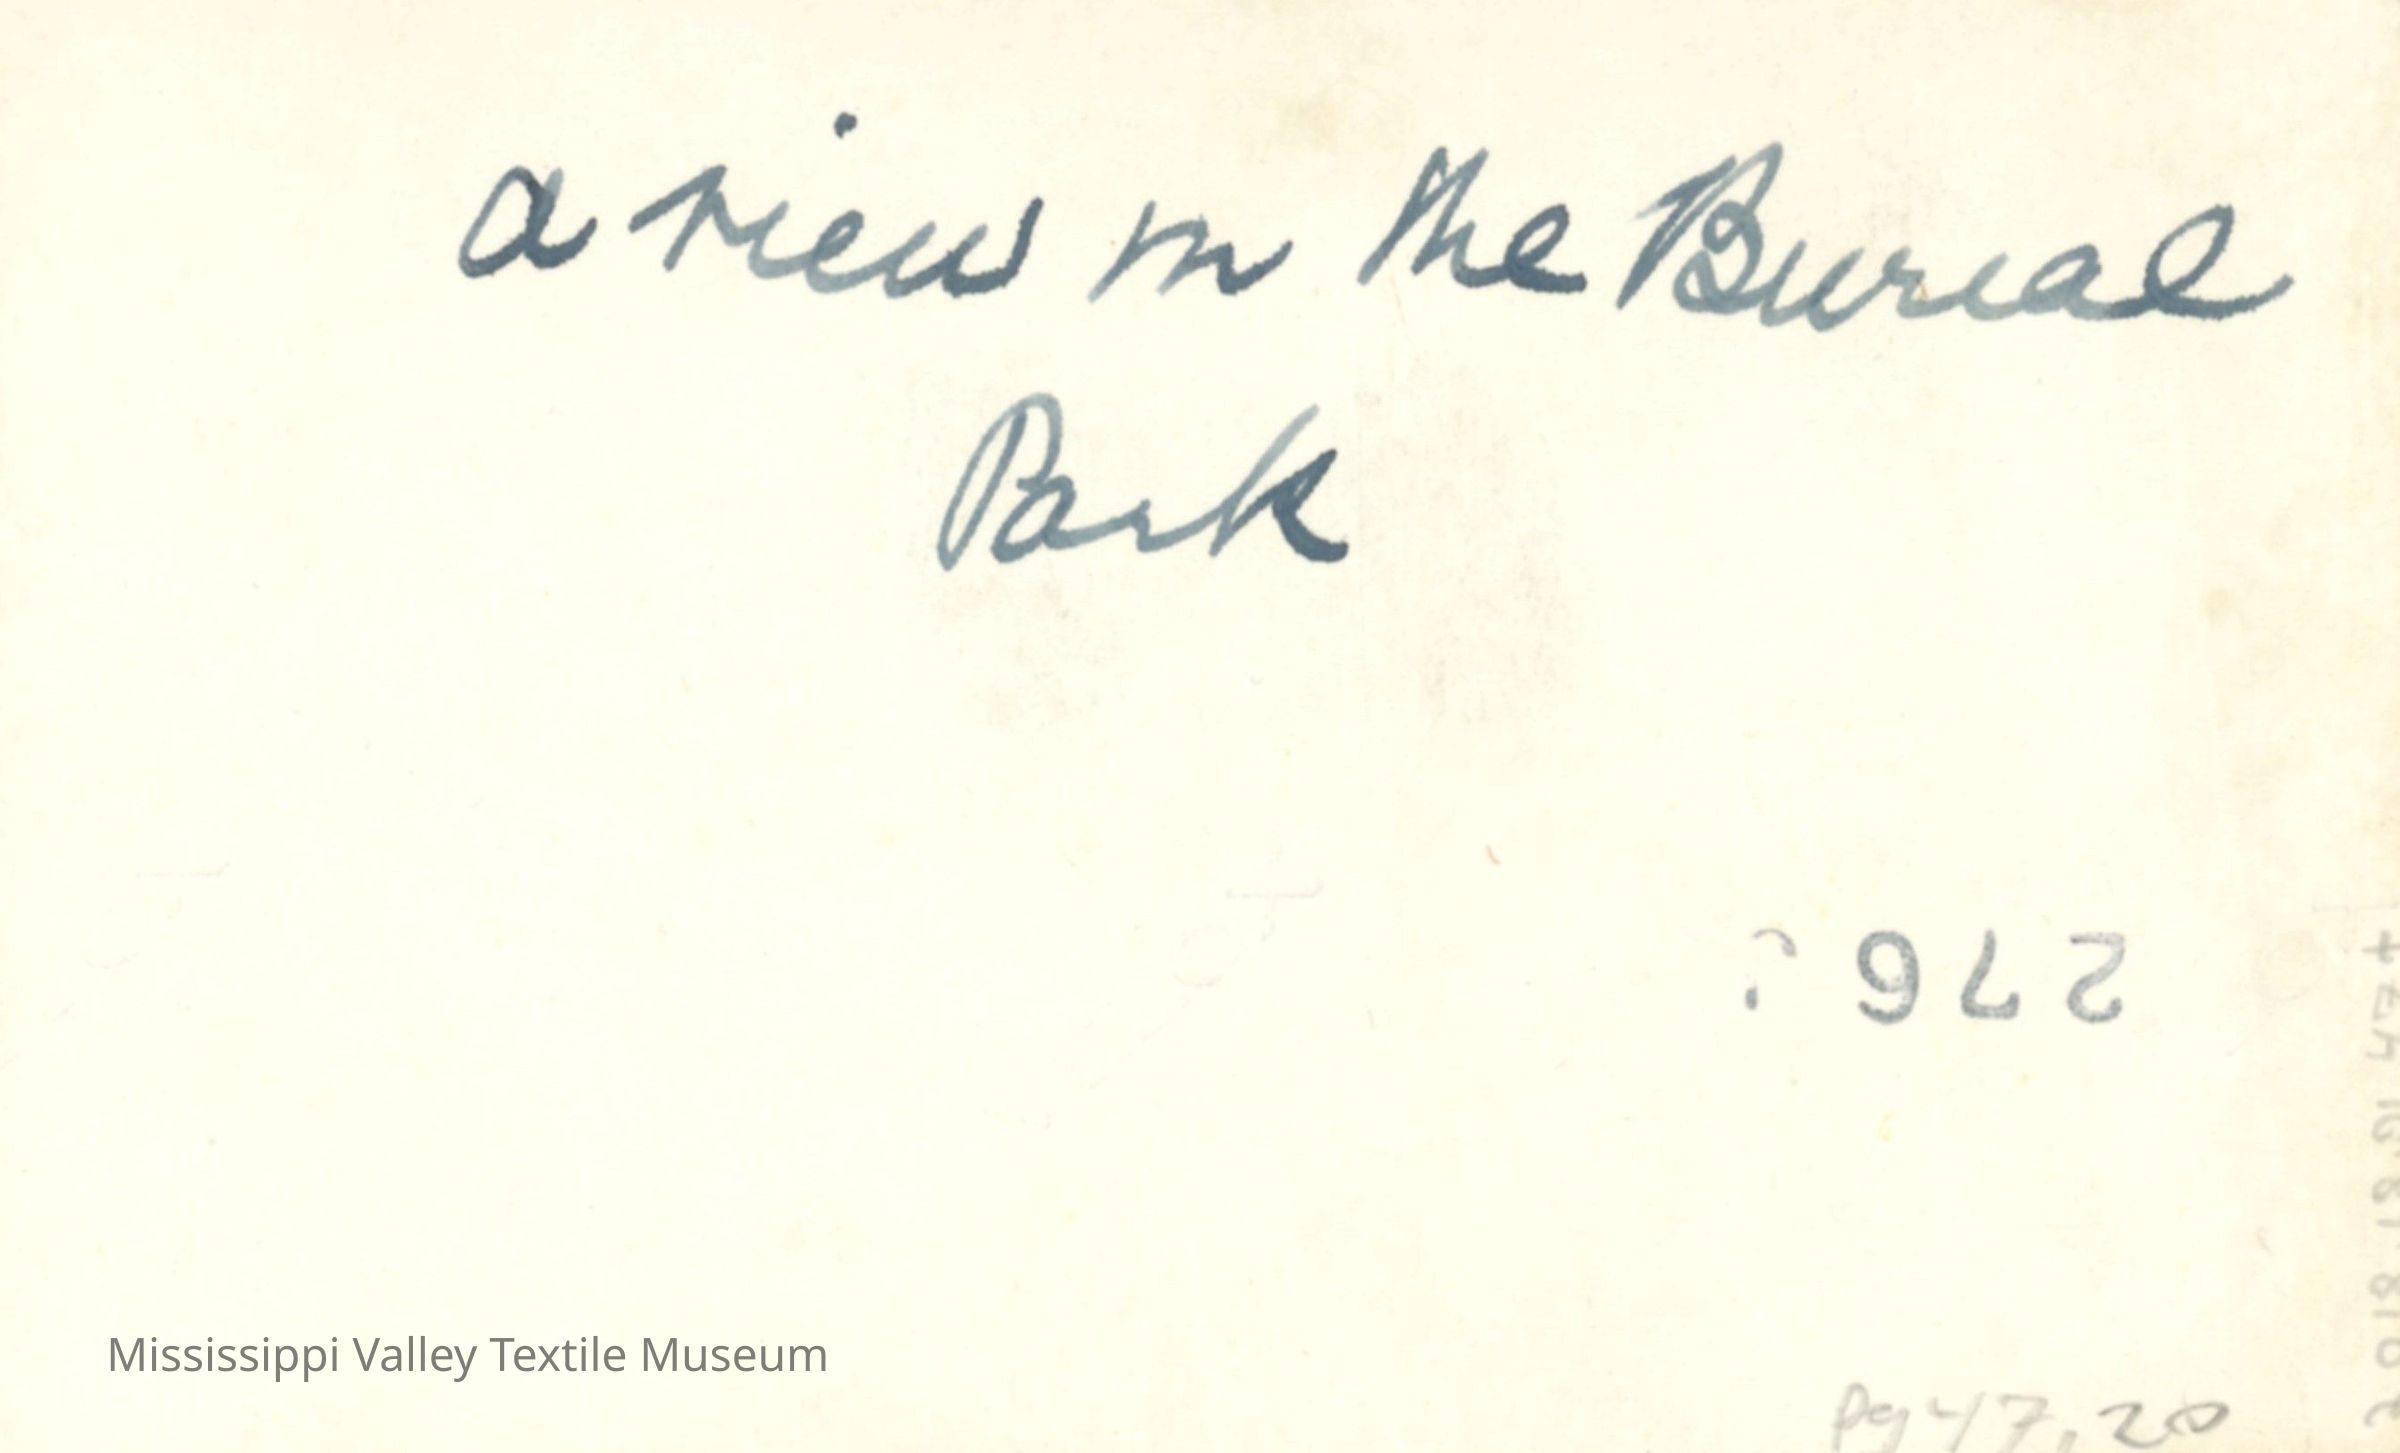 a view in the Burial
Park
276
Mississippi Valley Textile Museum
pg 47, 20